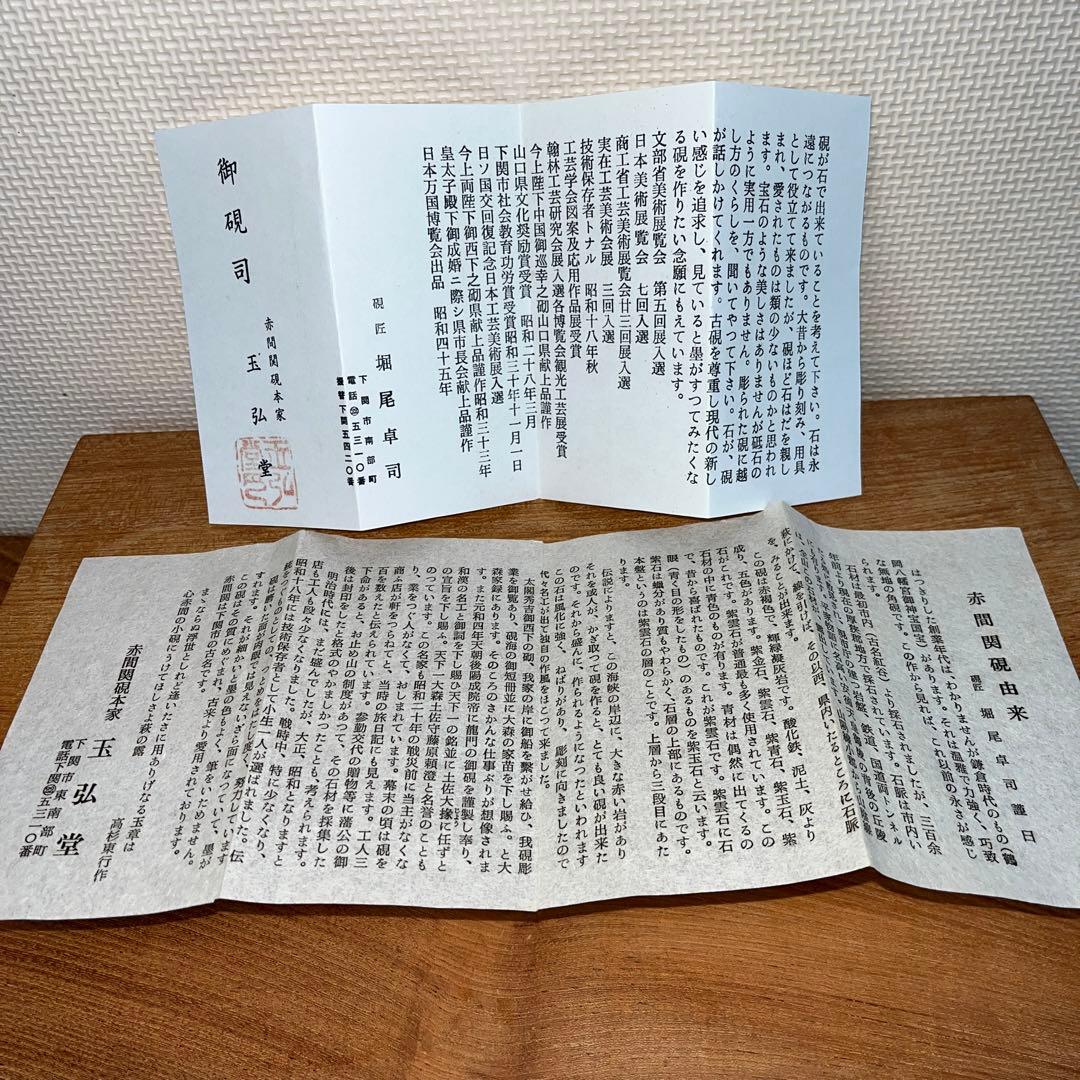 硯が石で出来ていることを考えて下さい。石は永
遠につながるものです。大昔から彫り刻み、用具
として役立てて来ましたが、硯ほど石はだを親し
まれ、愛されたものは類の少ないものかと思われ
ます。宝石のような美しさはありませんが砥石の
ように実用一方でもありません。彫られた硯に越
し方のくらしを、聞いてやつて下さい。石が、硯
が話しかけてくれます。古硯を尊重し現代の新し
い感じを追求し、見ていると墨がすつてみたくな
る硯を作りたい念願にもえています。
文部省美術展覧会 第五回展入選
日本美術展覧会 七回入選
商工省工芸美術展覧会廿三回展入選
実在工芸美術会展 三回入選
技術保存者トナル 昭和十八年秋
工芸学会図案及応用作品展受賞
翰林工芸研究会展入選各博覧会観光工芸展受賞
今上陛下中国御巡幸之砌山口県献上品謹作
山口県文化奨励賞受賞 昭和二十八年三月
下関市社会教育功労賞受賞昭和三十年十一月一日
日ソ国交回復記念日本工芸美術展入選
今上両陛下御西下之砌県献上品謹作昭和三十三年
皇太子殿下御成婚ニ際シ県市長会献上品謹作
日本万国博覧会出品 昭和四十五年
硯匠 堀尾卓司
下関市南部町
電話㉒五三一〇番
振替下関五四二〇番
御硯司
赤間関硯本家
玉弘堂
赤間関硯由来
硯匠 堀尾卓司 謹日
はつきりした創業年代は、わかりませんが鎌倉時代のもの(鶴
岡八幡宮御神宝国宝)があります。それは温雅で力強く、巧致
な無地の角硯です。この作から見れば、これ以前の永さが感じ
られます。
石材は最初市内(古名紅谷)より採石されましたが、三百余
年前より現在の厚狭郡地方で採石されています。石脈は市内い
萩にかけて、線を引けば、その以西、県内いたるところに石脈
を、みることが出来ます。
この硯は赤褐色で、輝緑凝灰岩です。酸化鉄、泥土、灰より
成り、五色があります。紫金石、紫雲石、紫青石、紫玉石、紫
石がこれです。紫雲石が普通最も多く使用されています。この
石材の中に青色のものが有ります。青材は偶然に出てくるの
で、昔から喜ばれたものです。これが紫雲石です。石に
眼(青く目の形をしたもの)のあるものを紫玉石と云います。
紫石は蝋分があり質もやわらかく、石層の上部にあるものです。
本盤というのは紫雲石の層のことです。上層から三段目にあた
ります。
伝説によりますと、この海峡の岸辺に、大きな赤い岩があり
それを或人が、かぎ取つて硯を作ると、とても良い硯が出来た
のです。それから盛んに、作られるようになつたといわれます
この石は風化に強く、ねばりがあり、彫刻に向きましたので
代々名工が出て独自の作風をほこつて来ました。
太閤秀吉御西下の砌、我家の岸に御船を繋がせ給ひ、我硯彫
業を御覧あり、硯海の御短冊並に大森の家苗を下し賜ふ。と大
森家録にあります。そのころのさかんな仕事ぶりが想像されま
す。また元和四年天朝後陽成院帝に龍門の御硯を謹製し奉り、
和漢の名工と御詞を下し賜ひ天下一の銘並に土佐大掾に任ずと
の宣旨を下し賜ふ。天下一大森土佐守藤原頼澄と名誉のことも
のつています。この名家も昭和二十年の戦災前に当主がなくな
り、業をつぐ人がなくて、おしまれています。幕末の頃は硯を
商ふ店が軒をつらねてと、当時の旅日記にも見えます。工人三
百を数えたと伝えられています。参勤交代の贈物等に藩公の御
下命があると、お止め山の制度があつて、その石材を採集した
後は封印をしたと格式のやかましかつたことも、考えられます。
明治時代は、まだ墟んでしたが、大正、昭和となりますと
店も工人も段々少なくなりました。戦時中、特に少なくなり、
昭和十八年には技術保存者として小生一人が選ばれました。伝
統をつぐものとしての、つとめをはじしじ度く、努力しています。
すれます。それが細かいと墨の色もよく、筆をいためません。
この硯はその質にめぐまれ、古来より愛用されております。
赤間関は下関市の古名です。
心赤間の小硯にうけてほしさよ萩の露
まゝならぬ浮世としれど逢いたさに用ありげなる玉章は
高杉東行作
赤間関硯本家
玉弘堂
下関市東南部町
電話下関㉒五三一〇番